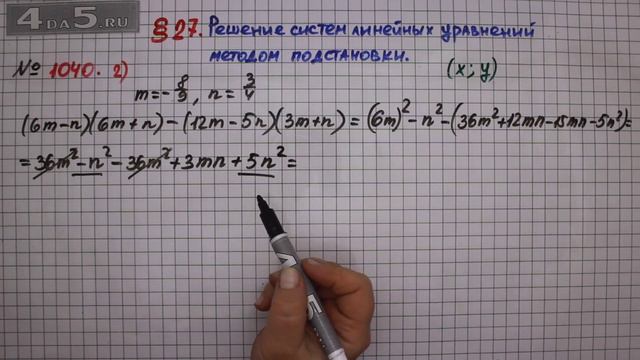 4DA5.RU
§27. Решение систем линейных уравнений
методом подстановки.
№ 1040. 2)
(x; y)
m = -8/9, n = 3/4
(6m-n)(6m+n)-(12m-5n)(3m+n) = (6m)²-n²-(36m²+12mn-15mn-5n²)=
= 36m²-n²-36m²+3mn+5n²=